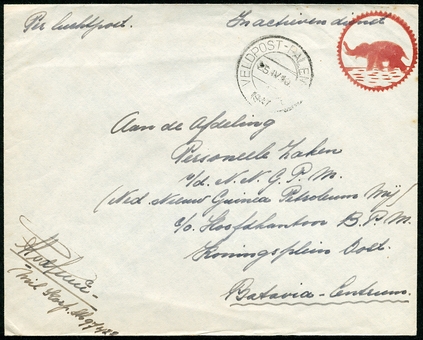 Per luchtpost.
In actieven dienst
VELDPOST-PALEM
1947
Aan de Afdeling
Personeele Zaken
v/d. N.N.G.P.M.
(Ned. Nieuw Guinea Petroleum Mij)
c/o. Hoofdkantoor B.P.M.
Koningsplein Oost.
Batavia-Centrum.